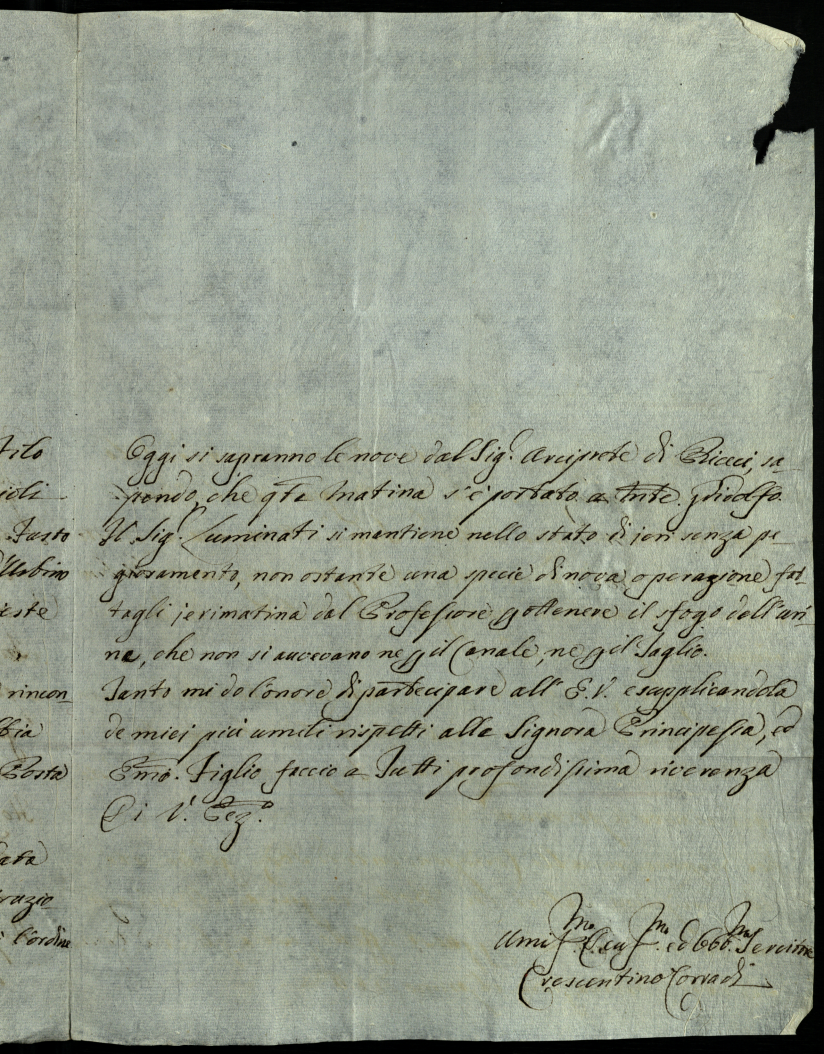 filo
ioli
Fasto
Urbino
ieste
rincon-
bbia
Posta
ata
razio
l'ordine
Oggi si sapranno le nove dal Sig.r Arciprete di Piceci, sa-
pendo, che q.sta Matina s'è portato a Mte. Ridolfo.
Il Sig.r Luminati si mantiene nello stato di jeri senza pe-
gioramento, non ostante una specie di nova operazione fat-
tagli jerimatina dal Professore p ottenere il sfogo dell'uri-
ne, che non si avevano ne p il Canale, ne p il Taglio.
Tanto mi do l'onore di partecipare all' E.V. e supplicandola
de miei più umili rispetti alla Signora Principessa, ed
Emo. Figlio faccio a Tutti profondissima riverenza
Di V. Ecz.a
Umil.mo Dev.mo ed Obb.mo Servitore
Crescentino Corradi